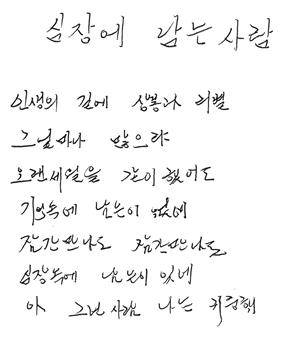 심장에 남는 사람
인생의 길에 상봉과 리별
그 얼마나 많으랴
오랜세월을 같이 했어도
기억속에 남는이 없네
잠간만나도 잠간만나도
심장속에 남는이 있네
아 그런 사람 나는 귀중해